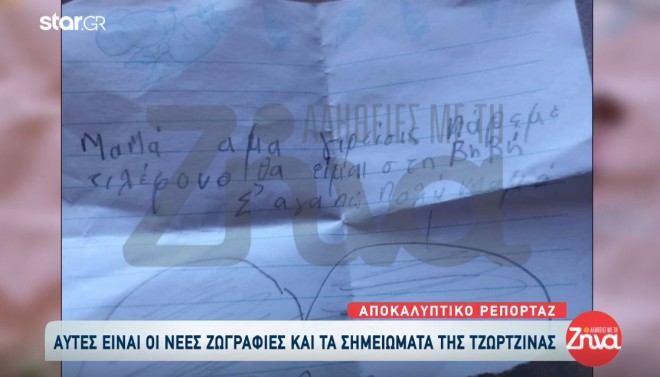 star.GR
ΑΛΗΘΕΙΕΣ ΜΕ ΤΗ
Ζήνα
Μαμά αμα γιρεισις παρεμε
τιλέφονο θα ειμαι στη Βηβή
Σ'αγαπώ πολύ μαμά
ΑΠΟΚΑΛΥΠΤΙΚΟ ΡΕΠΟΡΤΑΖ
ΑΥΤΕΣ ΕΙΝΑΙ ΟΙ ΝΕΕΣ ΖΩΓΡΑΦΙΕΣ ΚΑΙ ΤΑ ΣΗΜΕΙΩΜΑΤΑ ΤΗΣ ΤΖΩΡΤΖΙΝΑΣ
ΑΛΗΘΕΙΕΣ ΜΕ ΤΗ
Ζήνα